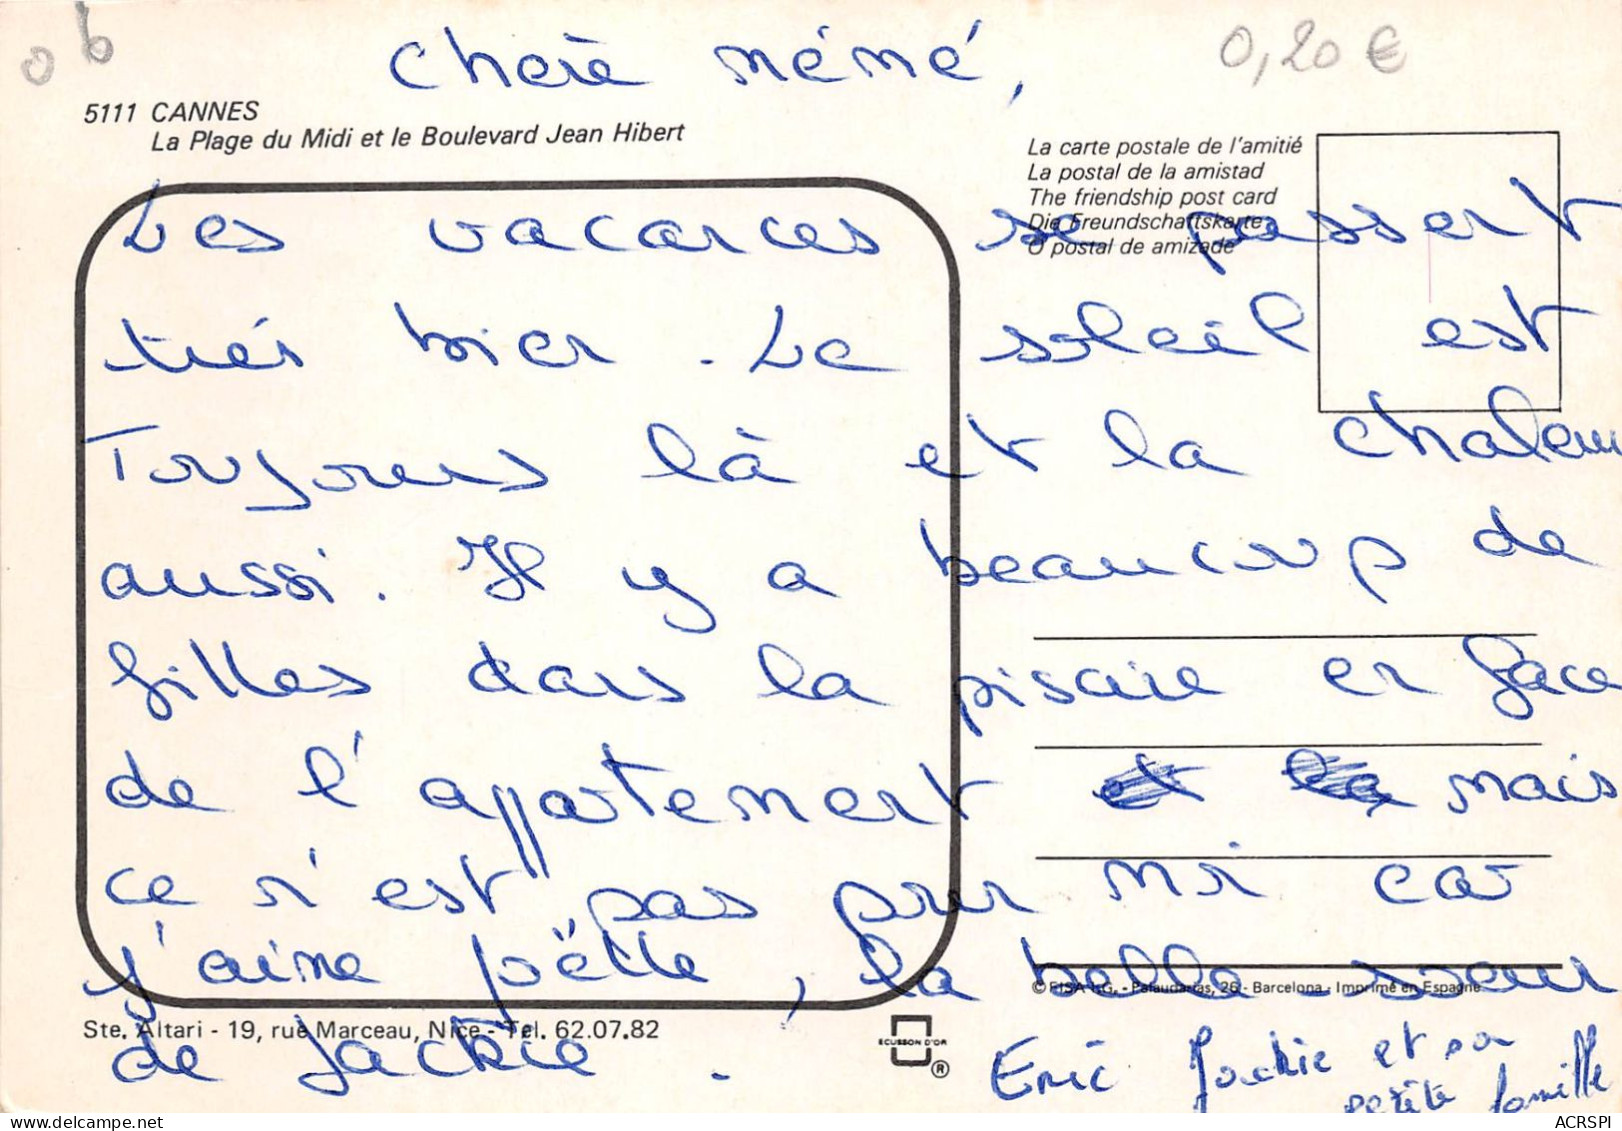 06
0,20 €
Chère mémé,
5111 CANNES
La Plage du Midi et le Boulevard Jean Hibert
La carte postale de l'amitié
La postal de la amistad
The friendship post card
Die Freundschaftskarte
O postal de amizade
Les vacances se passent
très bien. Le soleil est
Toujours là et la chaleur
aussi. Il y a beaucoup de
filles dans la piscine en face
de l'appartement et la mais
ce n'est pas pour moi car
j'aime Joëlle, la belle-sœur
de Jackie.
© FISA I.G. - Palaudarias, 26 - Barcelona - Imprimé en Espagne
Ste. Altari - 19, rue Marceau, Nice - Tel. 62.07.82
ECUSSON D'OR
®
Eric Jackie et sa
petite famille
ACRSPI